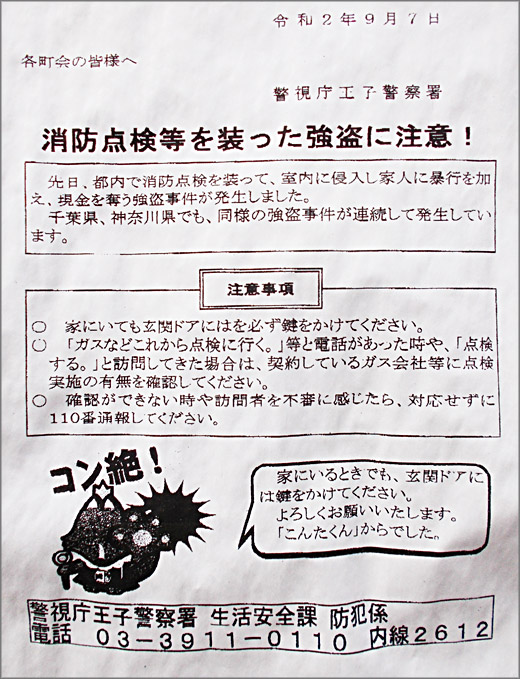 令和2年9月7日
各町会の皆様へ
警視庁王子警察署
消防点検等を装った強盗に注意！
先日、都内で消防点検を装って、室内に侵入し家人に暴行を加
え、現金を奪う強盗事件が発生しました。
千葉県、神奈川県でも、同様の強盗事件が連続して発生してい
ます。
注意事項
○　家にいても玄関ドアにはを必ず鍵をかけてください。
○　「ガスなどこれから点検に行く。」等と電話があった時や、「点検
する。」と訪問してきた場合は、契約しているガス会社等に点検
実施の有無を確認してください。
○　確認ができない時や訪問者を不審に感じたら、対応せずに
110番通報してください。
コン絶！
家にいるときでも、玄関ドアに
は鍵をかけてください。
よろしくお願いいたします。
「こんたくん」からでした。
警視庁王子警察署 生活安全課 防犯係
電話 03－3911－0110 内線2612